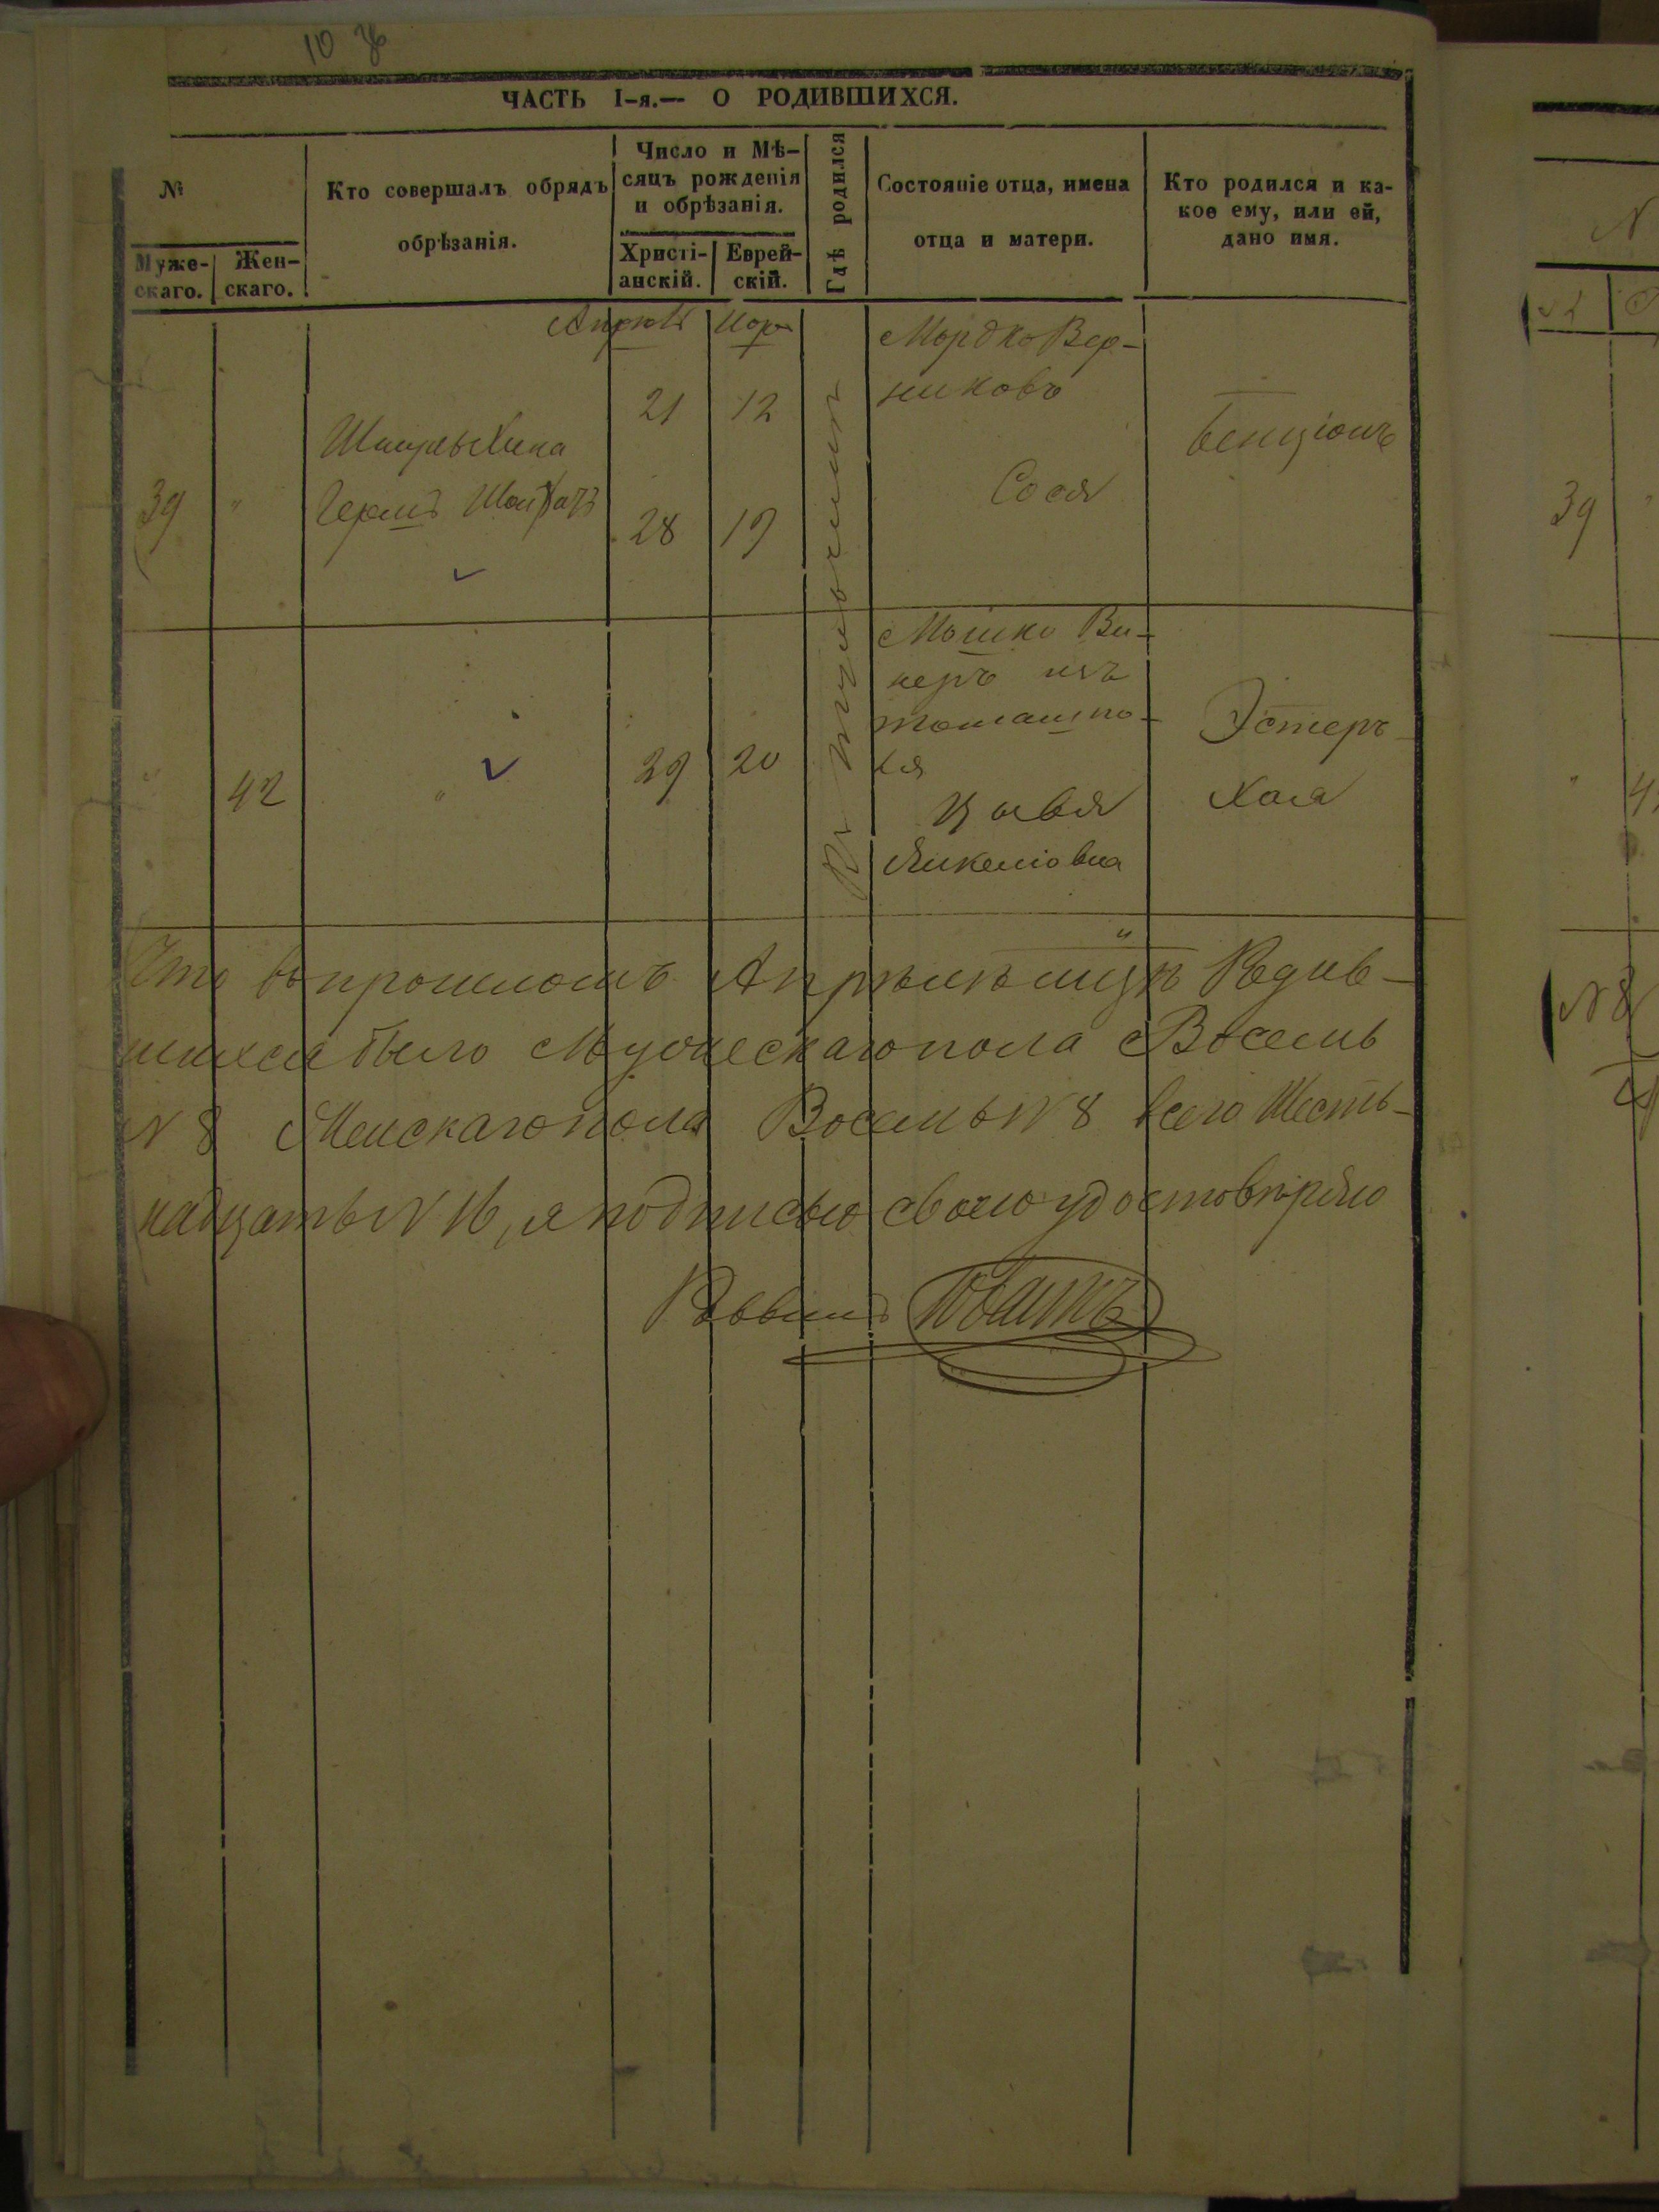 10
ЧАСТЬ I-я.— О РОДИВШИХСЯ.
№
Муже-
скаго.
Жен-
скаго.
Кто совершалъ обрядъ
обрѣзанія.
Число и Мѣ-
сяцъ рожденія
и обрѣзанія.
Христі-
анскій.
Еврей-
скій.
Гдѣ родился
Состояніе отца, имена
отца и матери.
Кто родился и ка-
кое ему, или ей,
дано имя.
39
"
21
12
28
19
Мордко Вер-
никовъ
Сося
Бенціонъ
"
42
"
29
20
Мошко Ви-
неръ изъ
томашпо-
ля
Цывя
Янкеліовна
Эстеръ
Хая
Что въ прошломъ Апрѣлѣ мцѣ Родив-
шихся было Мужескаго пола Восемь
N 8 Женскаго пола Восемь N 8 всего Шесть-
надцать N 16, я подписью своею удостовѣряю
Раввинъ
39
"
N 8